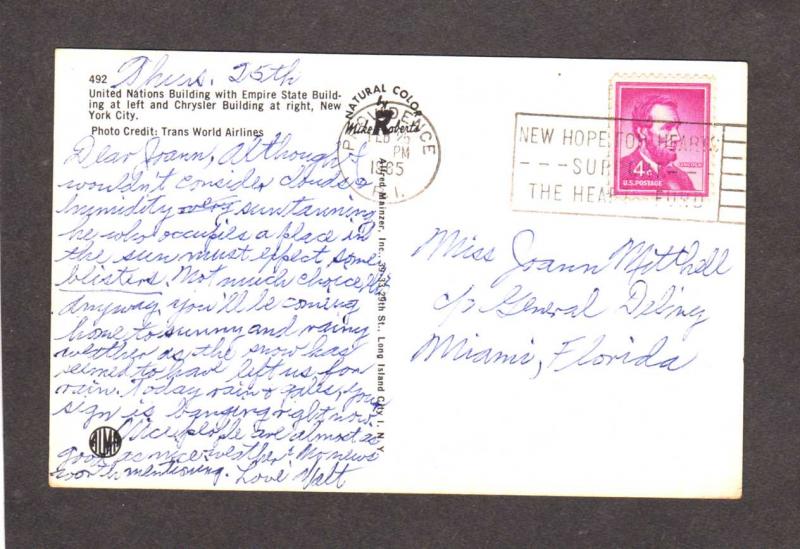 492 Thurs. 25th
United Nations Building with Empire State Build-
ing at left and Chrysler Building at right, New
York City.
Photo Credit: Trans World Airlines
Dear Joann, Although I
wouldn't consider clouds &
humidity very suntanning
he who occupies a place in
the sun must expect some
blisters. Not much choice
anyway you'll be coming
home to sunny and rainy
weather as the snow has
seemed to have left us for
rain. Today rain & gales, your
sign is banging right now.
Nice people are almost as
good as nice weather. No news
worth mentioning. Love Walt
ALMA
NATURAL COLOR
by
Mike Roberts
Alfred Mainzer, Inc., 39-33 29th St., Long Island City 1, N. Y.
PROVIDENCE
FEB 25
PM
1965
R.I.
NEW HOPE FOR HEARTS
---SUPPORT---
THE HEART FUND
LINCOLN
4¢
U.S. POSTAGE
Miss Joann Mitchell
c/o General Delivery
Miami, Florida